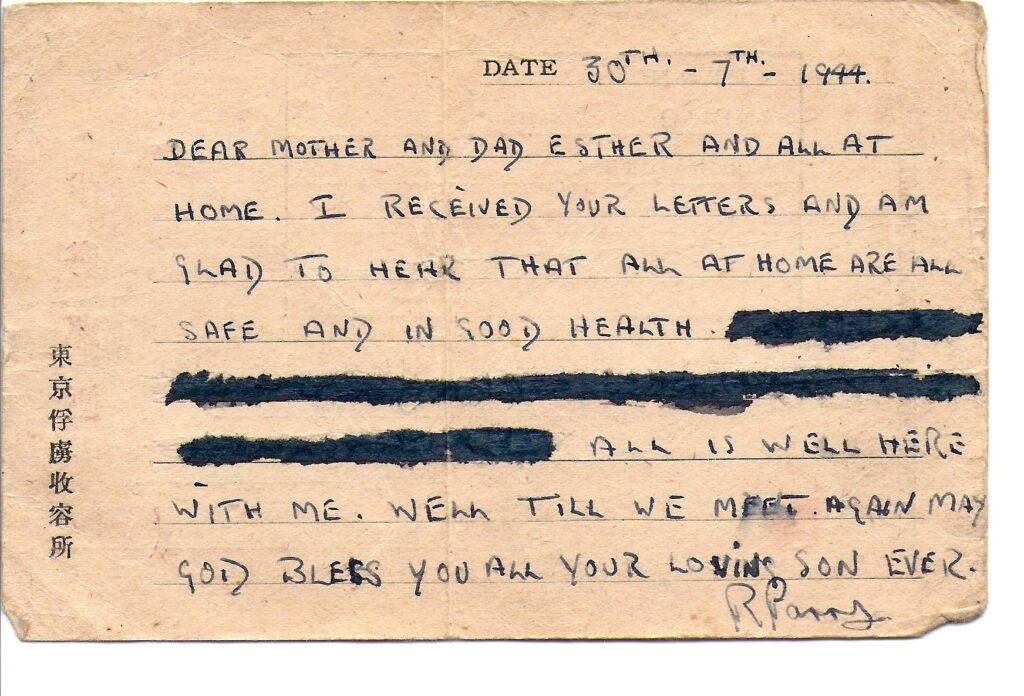 DATE 30TH. - 7TH. - 1944.
DEAR MOTHER AND DAD ESTHER AND ALL AT
HOME. I RECEIVED YOUR LETTERS AND AM
GLAD TO HEAR THAT ALL AT HOME ARE ALL
SAFE AND IN GOOD HEALTH.
ALL IS WELL HERE
WITH ME. WELL TILL WE MEET AGAIN MAY
GOD BLESS YOU ALL YOUR LOVING SON EVER.
R Parry
東京俘虜收容所